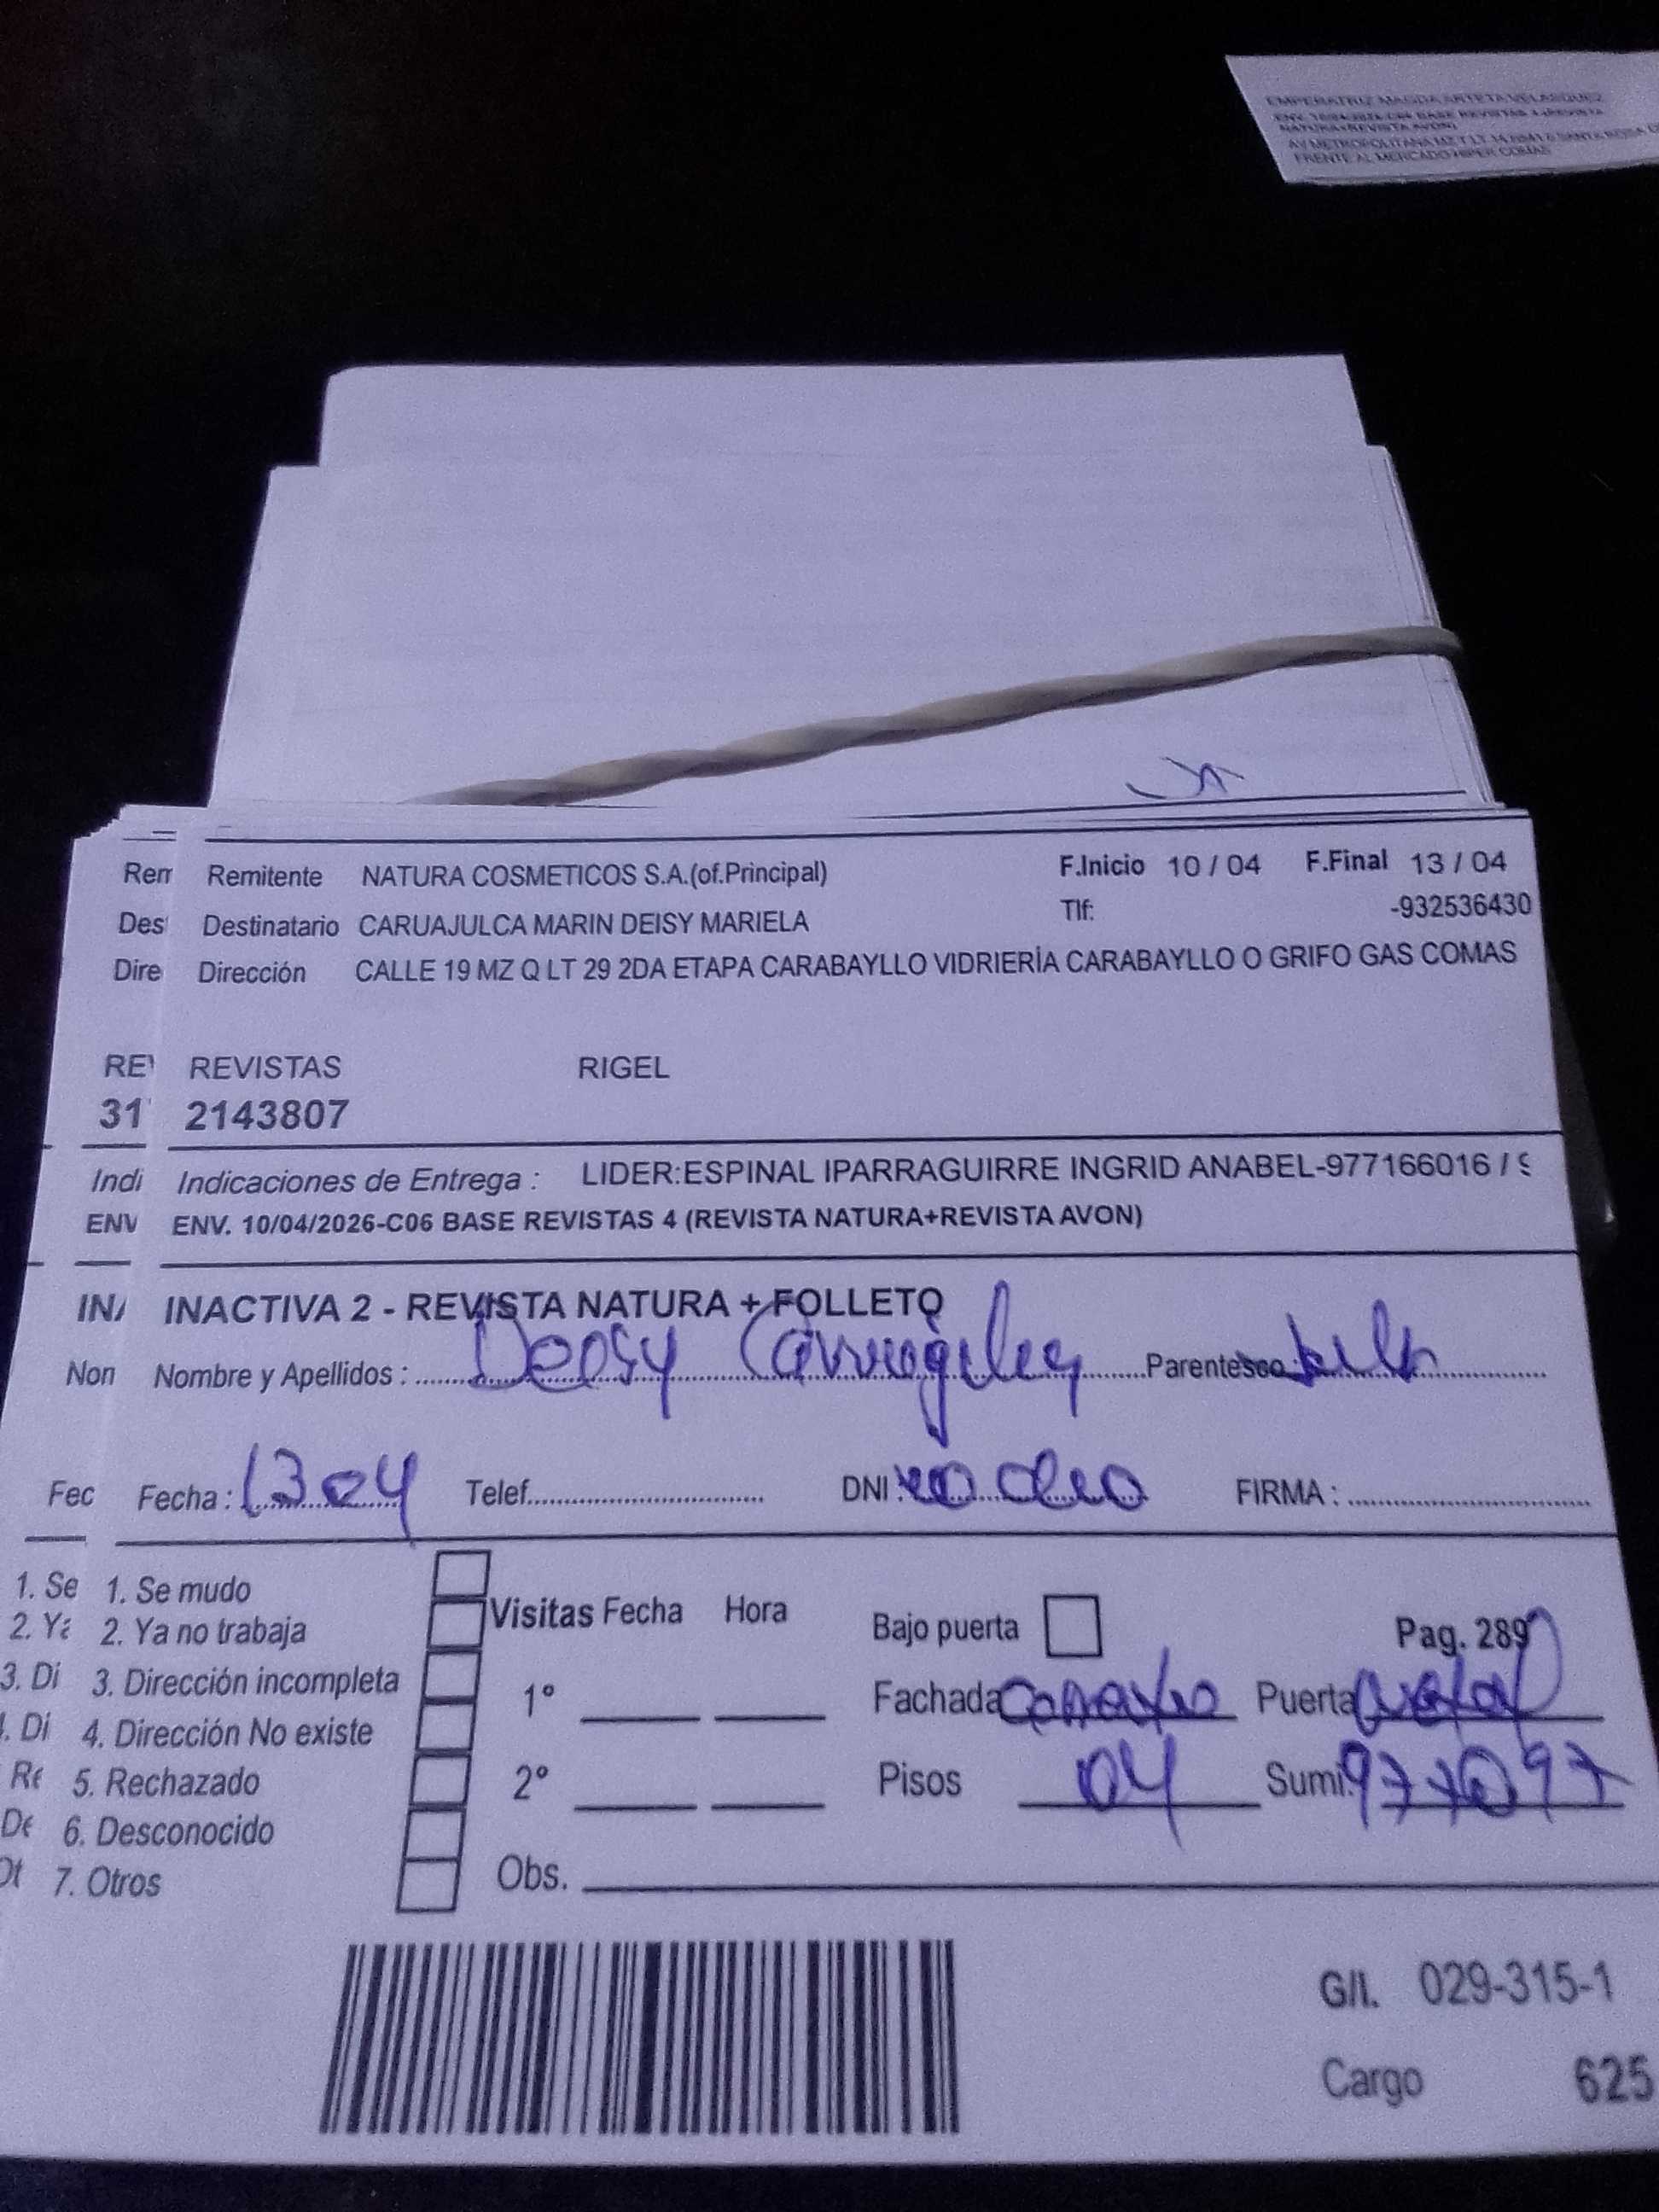 EMPERATRIZ MAGDA ARTETA VELASQUEZ
ENV. 10/04/2026-C06 BASE REVISTAS 4 (REVISTA
NATURA+REVISTA AVON)
AV METROPOLITANA MZ T LT 14 SANTA ROSA
FRENTE AL MERCADO HIPER COMAS
Rem Remitente NATURA COSMETICOS S.A.(of.Principal) F.Inicio 10 / 04 F.Final 13 / 04
Des Destinatario CARUAJULCA MARIN DEISY MARIELA Tlf: -932536430
Dire Dirección CALLE 19 MZ Q LT 29 2DA ETAPA CARABAYLLO VIDRIERÍA CARABAYLLO O GRIFO GAS COMAS
RE REVISTAS RIGEL
31 2143807
Indi Indicaciones de Entrega : LIDER:ESPINAL IPARRAGUIRRE INGRID ANABEL-977166016 / 9
ENV ENV. 10/04/2026-C06 BASE REVISTAS 4 (REVISTA NATURA+REVISTA AVON)
INA INACTIVA 2 - REVISTA NATURA + FOLLETO
Non Nombre y Apellidos : Deosy Parentesco :
Fec Fecha : 13 04 Telef. DNI : FIRMA :
1. Se 1. Se mudo
2. Ya 2. Ya no trabaja Visitas Fecha Hora Bajo puerta Pag. 289
3. Di 3. Dirección incompleta 1° Fachada Puerta
4. Di 4. Dirección No existe
Re 5. Rechazado 2° Pisos 04 Sumi.
De 6. Desconocido
Ot 7. Otros Obs.
G/I. 029-315-1
Cargo 625